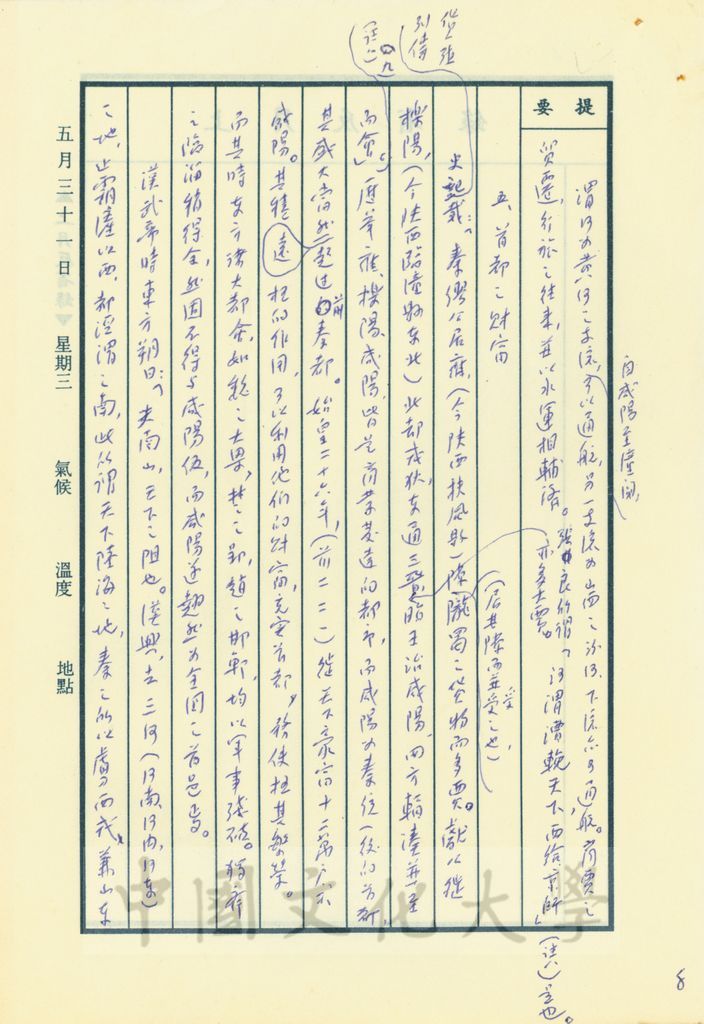 提要
渭河為黃河之支流,可以通航,另一支流為山西之汾河,下流亦可通航。商賈之
自咸陽至潼關,
貿遷,行旅之往來,並以水運相輔濟。張良所謂「河渭漕輓天下西給京師」(註八)是也。
五、首都之財富
史記載:「秦繆公居雍,(今陝西扶風縣)隙隴蜀之貨物而多賈。獻公徙
亦多大賈。
(居其隙而並受之也),
貨殖列傳
櫟陽,(今陝西臨潼縣東北)北卻戎狄,東通三晉,昭王治咸陽,四方輻湊並至
而會」(註九)歷年雍、櫟陽、咸陽,皆是商業發達的都市,而咸陽為秦統一後的首都,
其盛大當然超過前秦都。始皇二十六年,(前二二一)徙天下豪富十二萬戶于
咸陽。其種遠 極的作用,可以利用他們的財富,充實首都,務使極其繁榮。
而其時東方諸大都會,如魏之大梁,楚之郢,趙之邯鄲,均以軍事殘破。獨齊
之臨淄稍得全,然固不得與咸陽伍,而咸陽遂翹然為全國之首邑焉。
漢武帝時東方朔曰:「夫南山,天下之阻也。漢興,去三河(河南河內河東)
之地,止霸滻以西,都涇渭之南,此所謂天下陸海之地,秦之所以虜西戎,兼山東
五月三十一日 星期三 氣候 溫度 地點
8
中國文化大學